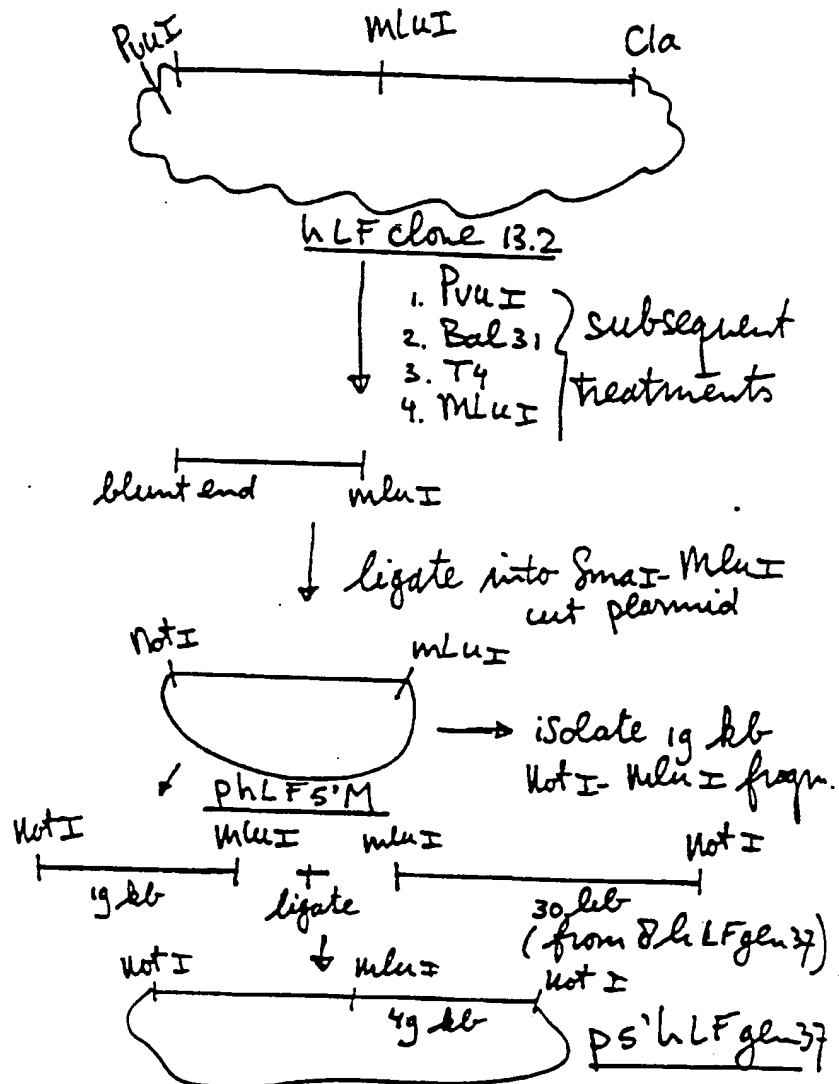 PvuI mLuI Cla
hLF clone 13.2
1. PvuI
2. Bal31
3. T4
4. MLuI
subsequent
treatments
blunt end mluI
ligate into SmaI-MluI
cut plasmid
NotI mLuI
→ isolate 19 kb
NotI-MluI fragm.
phLF5'M
NotI mLuI mluI NotI
19 kb + 30 kb
ligate (from 8hLFgen37)
NotI mluI NotI
49 kb
p5'hLFgen37